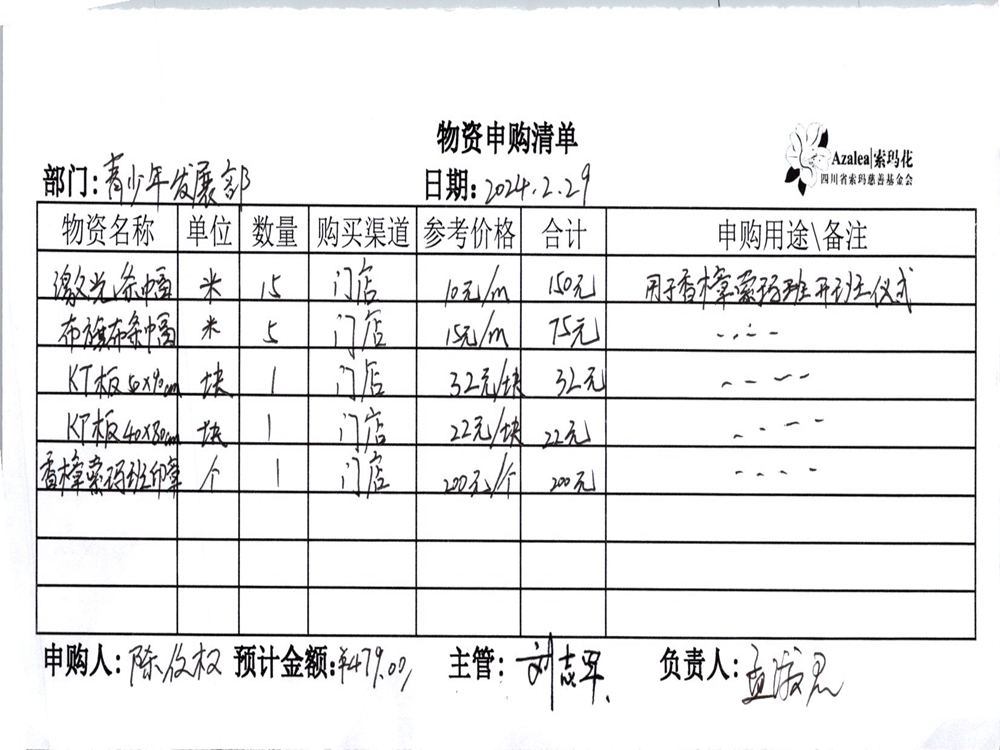 物资申购清单
Azalea|索玛花
四川省索玛慈善基金会
部门:青少年发展部 日期:2024.2.29
物资名称 单位 数量 购买渠道 参考价格 合计 申购用途\备注
激光条幅 米 15 门店 10元/m 150元 用于香樟索玛班开班仪式
布旗布条幅 米 5 门店 15元/m 75元
KT板 50X90cm 块 1 门店 32元/块 32元
KT板 40X80cm 块 1 门店 22元/块 22元
香樟索玛班印章 个 1 门店 200元/个 200元
申购人: 预计金额:¥479.00 主管:刘志军 负责人: